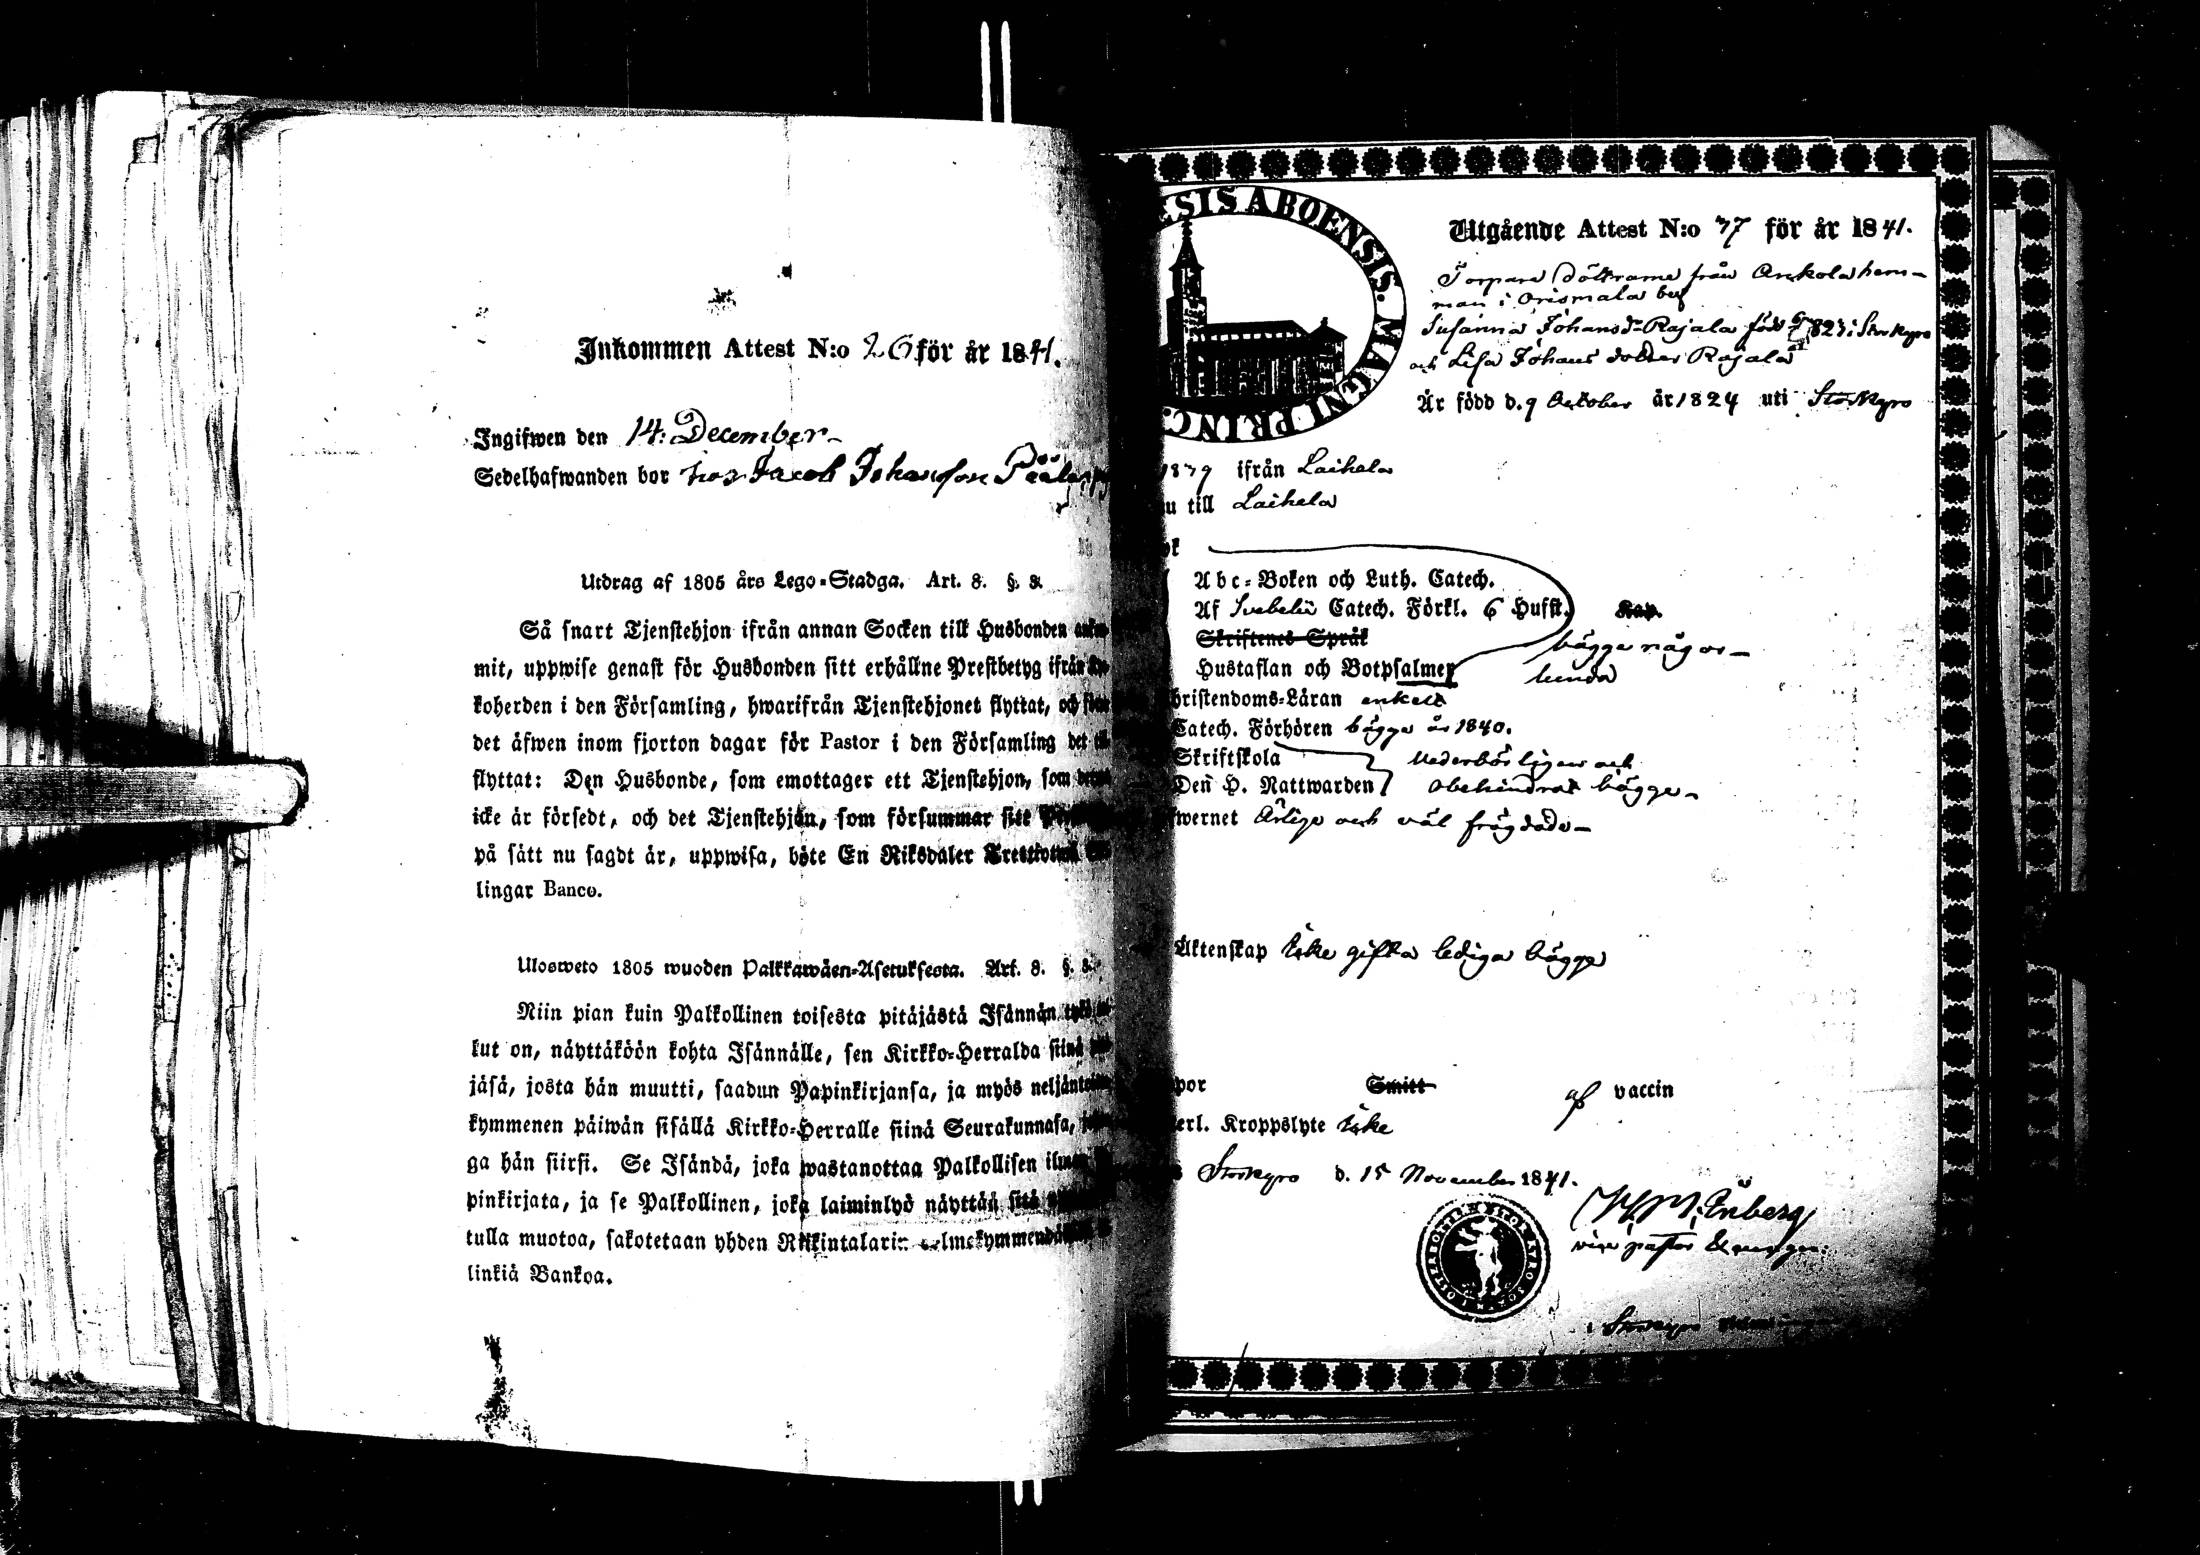 Inkommen Attest N:o 26 för år 1841.
Ingifwen den 14: December
Sedelhafwanden bor hos Jacob Johansson
Utdrag af 1805 års Lego-Stadga. Art. 8. §. 8.
Så snart Tjenstehjon ifrån annan Socken till Husbonden
mit, uppwise genast för Husbonden sitt erhållne Prestbetyg ifrån
koherden i den Församling, hwarifrån Tjenstehjonet flyttat, och
det äfwen inom fjorton dagar för Pastor i den Församling det
flyttat: Den Husbonde, som emottager ett Tjenstehjon, som
icke är försedt, och det Tjenstehjon, som försummar sitt
på sätt nu sagdt är, uppwisa, böte En Riksdaler Trettiotwå
lingar Banco.
Ulosweto 1805 wuoden Palkkawäen-Asetuksesta. Art. 8. §. 8.
Niin pian kuin Palkollinen toisesta pitäjästä Isännän
kut on, näyttäköön kohta Isännälle, sen Kirkko-Herralda siinä
jäsä, josta hän muutti, saadun Papinkirjansa, ja myös
kymmenen päiwän sisällä Kirkko-Herralle siinä Seurakunnasa,
ga hän siirsi. Se Isändä, joka wastanottaa Palkollisen ilman
pinkirjata, ja se Palkollinen, joka laiminlyö näyttää sitä
tulla muotoa, sakotetaan yhden Riikintalarin
linkiä Bankoa.
ESIS ABOENSIS. MAGNI PRINC.
Utgående Attest N:o 77 för år 1841.
Torpare döttrarne från Anckola hem-
man i Orismala by
Susanna Johansd:r Rajala född 1823 i Storkyro
och Lisa Johans dotter Rajala
Är född d. 9 October år 1824 uti Storkyro
1839 ifrån Laihela
nu till Laihela
ok
Abc-Boken och Luth. Catech.
Af Svebelii Catech. Förkl. 6 Hufst. Kap.
Skriftenes Språk
bägge någor-
Hustaflan och Botpsalmer
lunda
hristendoms-Läran enkelt
Catech. Förhören bägge år 1840.
Skriftskola
Vederbörligen och
Den H. Nattwarden
obehindrat bägge
fwernet Ärlige och väl frägdade
Äktenskap Icke gifta lediga bägge
por Smitt af vaccin
erl. Kroppslyte Icke
Storkyro d. 15 November 1841.
Enberg
vice pastor
i Storkyro